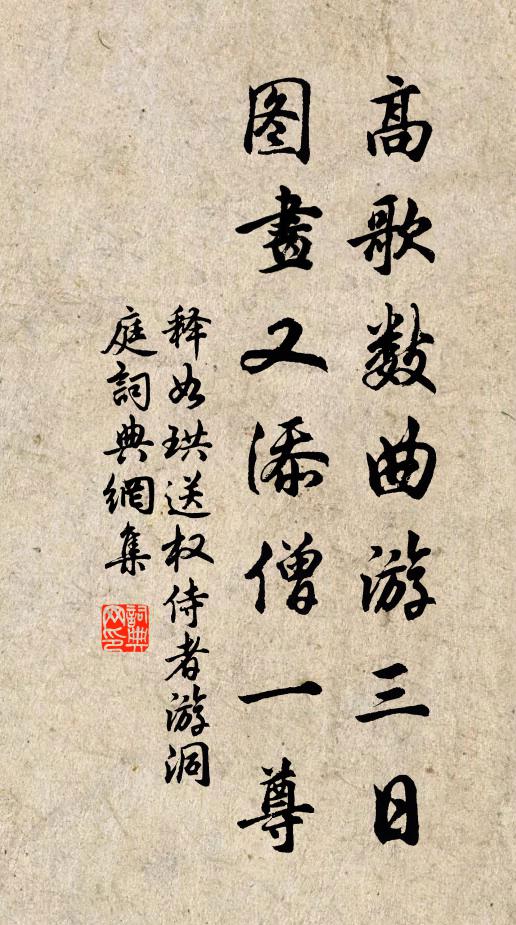 高歌数曲游三日
图畫又添僧一尊
释如珙送权侍者游洞
庭詞典網集
詞典网印